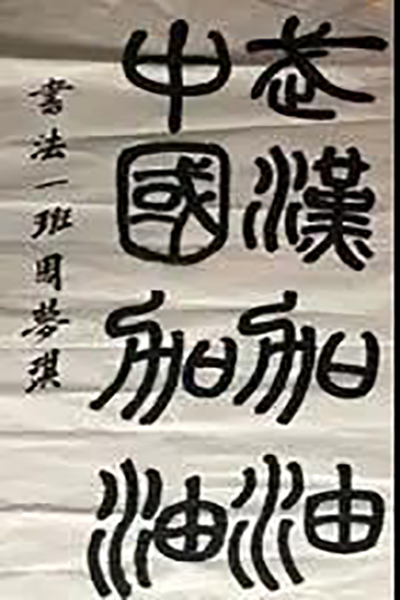 武漢加油
中國加油
書法一班周夢琪